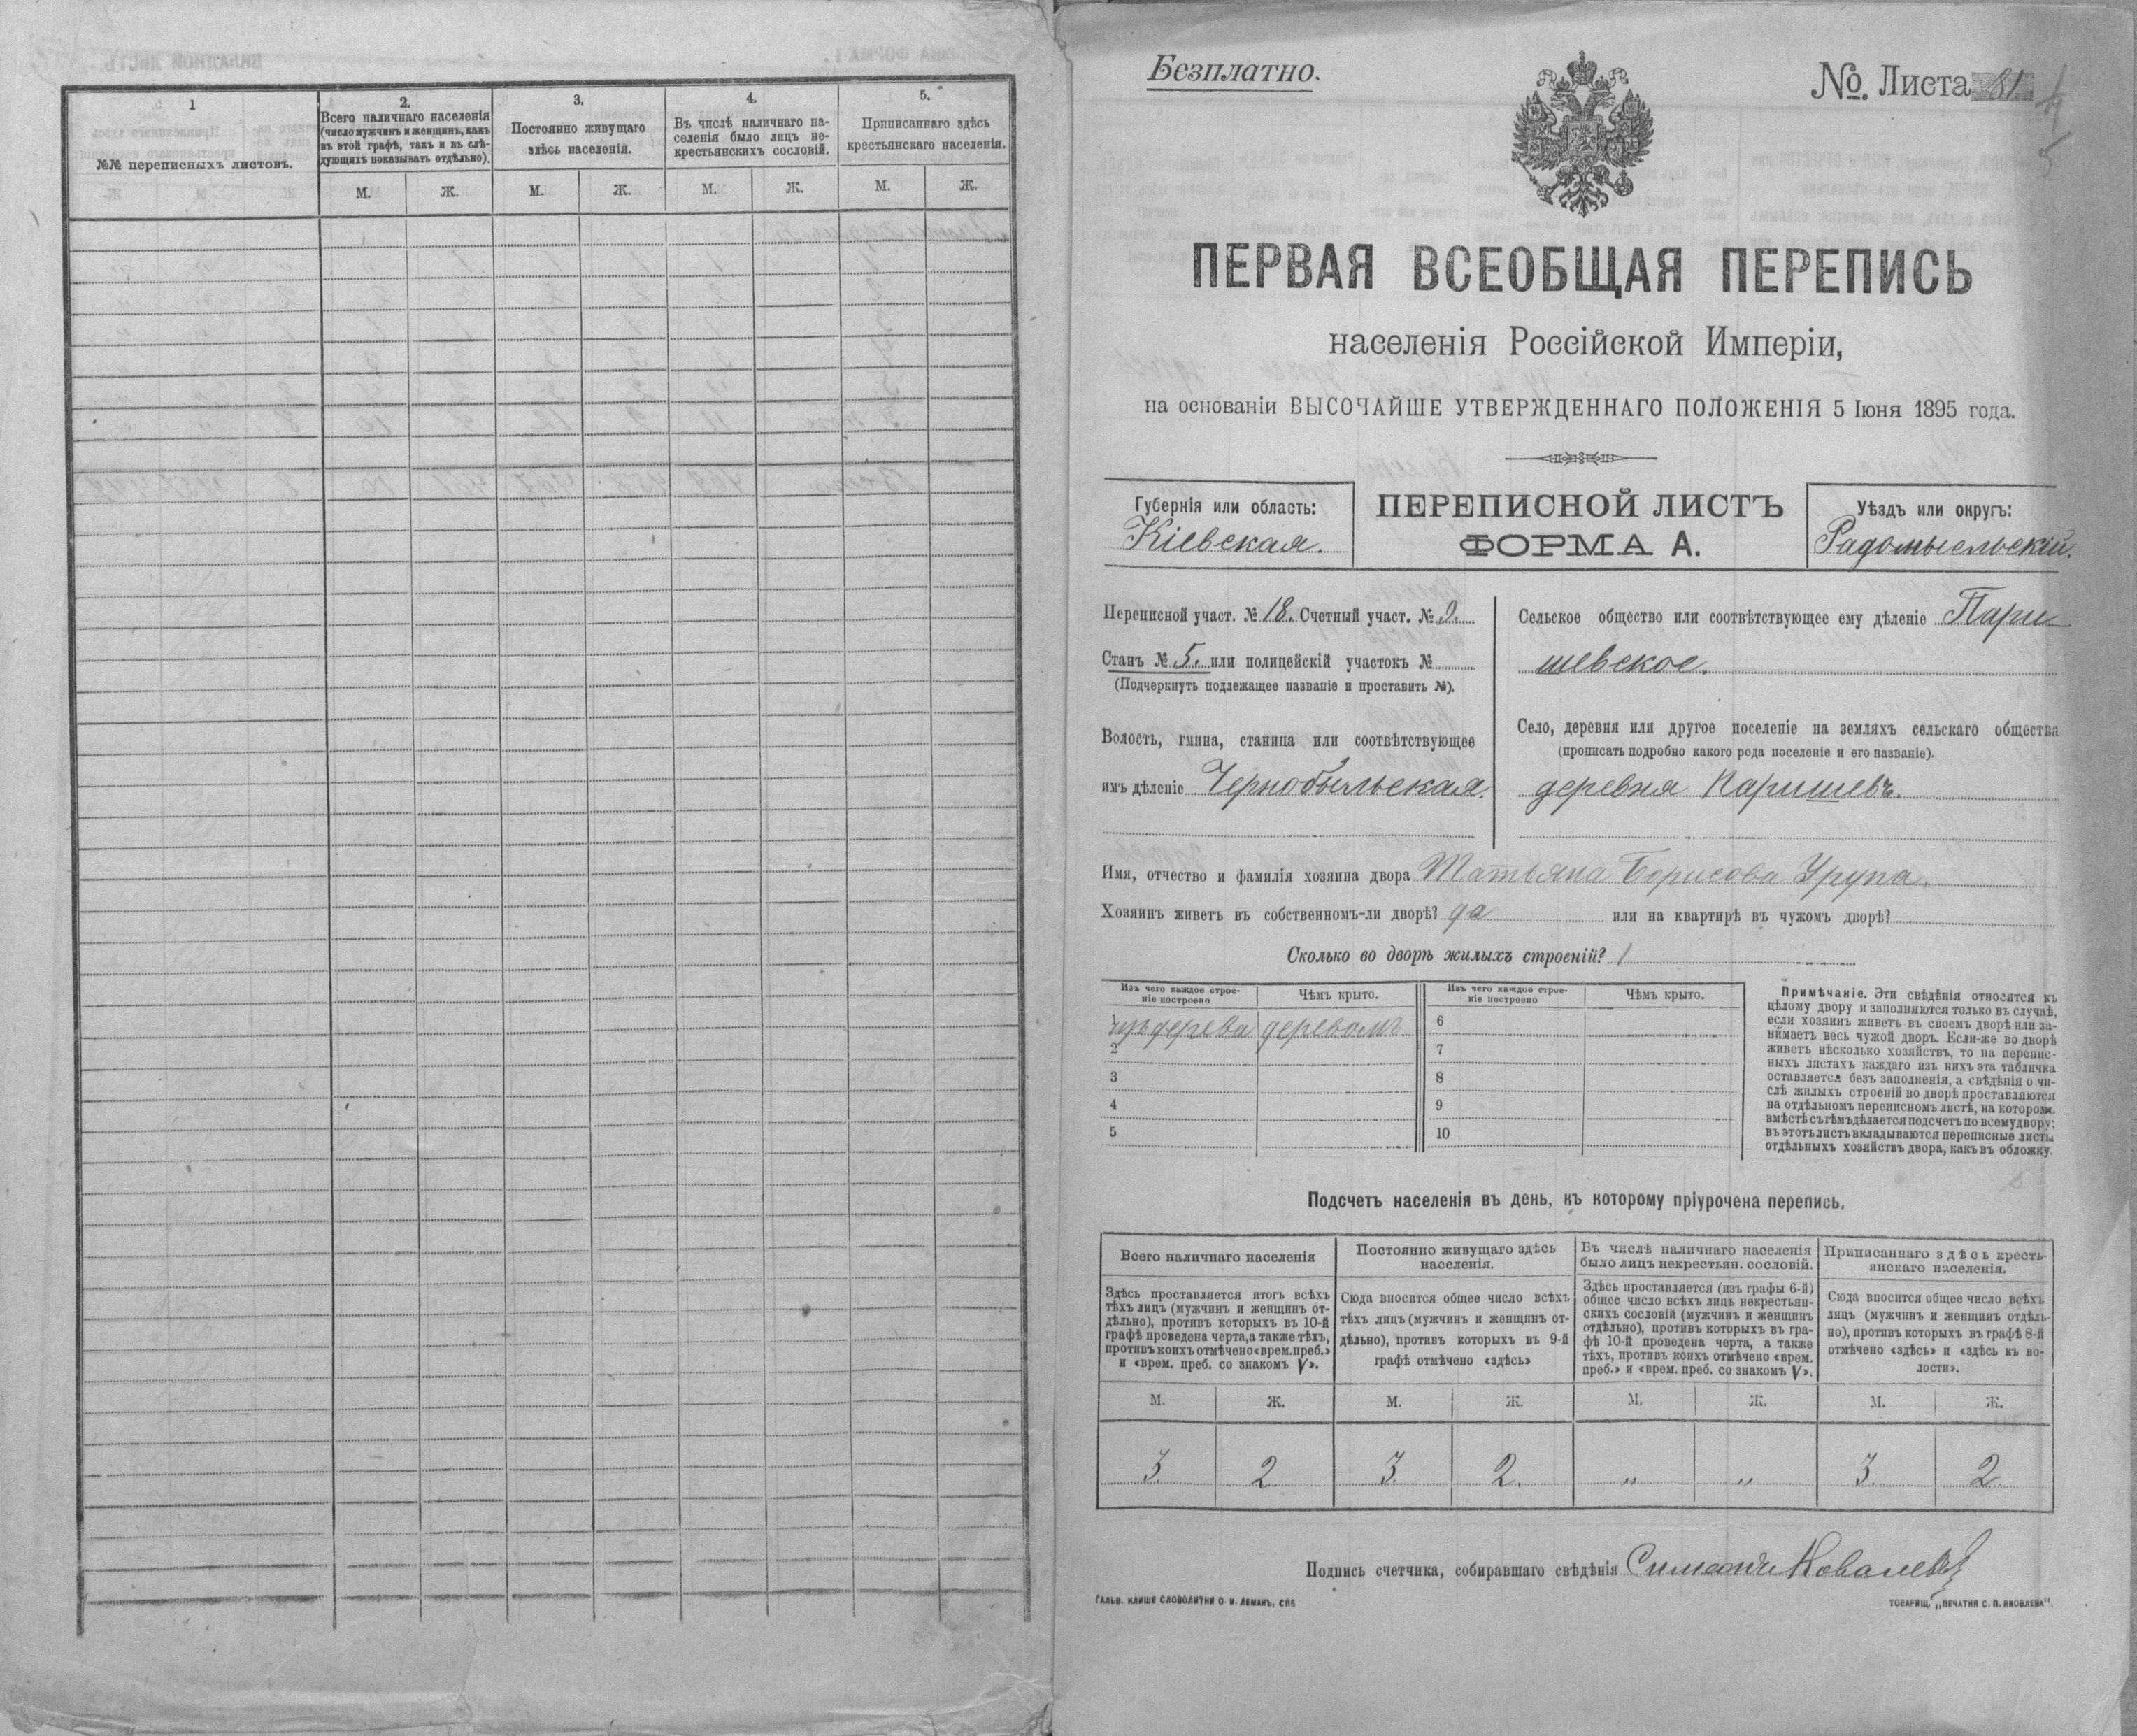 1
2.
3.
4.
5.
№№ переписныхъ листовъ.
Всего наличнаго населенія
(число мужчинъ и женщинъ, какъ
въ этой графѣ, такъ и въ слѣ-
дующихъ показывать отдѣльно).
Постоянно живущаго
здѣсь населенія.
Въ числѣ наличнаго на-
селенія было лицъ не-
крестьянскихъ сословій.
Приписаннаго здѣсь
крестьянскаго населенія.
М. Ж. М. Ж. М. Ж. М. Ж.
Безплатно.
№. Листа 81.
ПЕРВАЯ ВСЕОБЩАЯ ПЕРЕПИСЬ
населенія Россійской Имперіи,
на основаніи ВЫСОЧАЙШЕ УТВЕРЖДЕННАГО ПОЛОЖЕНІЯ 5 Іюня 1895 года.
Губернія или область:
Кіевская.
ПЕРЕПИСНОЙ ЛИСТЪ
ФОРМА А.
Уѣздъ или округъ:
Радомысльскій.
Переписной участ. № 18. Счетный участ. № 9.
Станъ № 5. или полицейскій участокъ №
(Подчеркнуть подлежащее названіе и проставить №).
Волость, гмина, станица или соотвѣтствующее
имъ дѣленіе Чернобыльская.
Сельское общество или соотвѣтствующее ему дѣленіе Пари-
шевское.
Село, деревня или другое поселеніе на земляхъ сельскаго общества
(прописать подробно какого рода поселеніе и его названіе).
деревня Паришевъ.
Имя, отчество и фамилія хозяина двора Татьяна Борисова Урупа.
Хозяинъ живетъ въ собственномъ-ли дворѣ? да или на квартирѣ въ чужомъ дворѣ?
Сколько во дворѣ жилыхъ строеній? 1
Изъ чего каждое строе-
ніе построено
Чѣмъ крыто.
Изъ чего каждое строе-
ніе построено
Чѣмъ крыто.
1 изъ дерева деревомъ 6
2 7
3 8
4 9
5 10
Примѣчаніе. Эти свѣдѣнія относятся къ
цѣлому двору и заполняются только въ случаѣ,
если хозяинъ живетъ въ своемъ дворѣ или за-
нимаетъ весь чужой дворъ. Если-же во дворѣ
живетъ нѣсколько хозяйствъ, то на перепис-
ныхъ листахъ каждаго изъ нихъ эта табличка
оставляется безъ заполненія, а свѣдѣнія о чи-
слѣ жилыхъ строеній во дворѣ проставляются
на отдѣльномъ переписномъ листѣ, на которомъ
вмѣстѣ съ тѣмъ дѣлается подсчетъ по всему двору;
въ этотъ листъ вкладываются переписные листы
отдѣльныхъ хозяйствъ двора, какъ въ обложку.
Подсчетъ населенія въ день, къ которому пріурочена перепись.
Всего наличнаго населенія
Постоянно живущаго здѣсь
населенія.
Въ числѣ наличнаго населенія
было лицъ некрестьян. сословій.
Приписаннаго здѣсь кресть-
янскаго населенія.
Здѣсь проставляется итогъ всѣхъ
тѣхъ лицъ (мужчинъ и женщинъ от-
дѣльно), противъ которыхъ въ 10-й
графѣ проведена черта, а также тѣхъ,
противъ коихъ отмѣчено «врем. преб.»
и «врем. преб. со знакомъ V».
Сюда вносится общее число всѣхъ
тѣхъ лицъ (мужчинъ и женщинъ от-
дѣльно), противъ которыхъ въ 9-й
графѣ отмѣчено «здѣсь»
Здѣсь проставляется (изъ графы 6-й)
общее число всѣхъ лицъ некрестьян-
скихъ сословій (мужчинъ и женщинъ
отдѣльно), противъ которыхъ въ гра-
фѣ 10-й проведена черта, а также
тѣхъ, противъ коихъ отмѣчено «врем.
преб.» и «врем. преб. со знакомъ V».
Сюда вносится общее число всѣхъ
лицъ (мужчинъ и женщинъ отдѣль-
но), противъ которыхъ въ графѣ 8-й
отмѣчено «здѣсь» и «здѣсь къ во-
лости».
М. Ж. М. Ж. М. Ж. М. Ж.
3. 2 3. 2. „ „ 3. 2.
Подпись счетчика, собиравшаго свѣдѣнія Симеонъ Ковалев
ГАЛЬВ. КЛИШЕ СЛОВОЛИТНИ О. И. ЛЕМАНЪ, СПБ
ТОВАРИЩ. „ПЕЧАТНЯ С. П. ЯКОВЛЕВА".